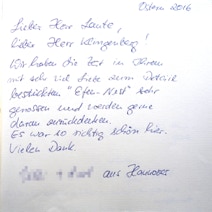 Ostern 2016
Lieber Herr Laute,
lieber Herr Klingenberg!
Wir haben die Zeit in Ihrem
mit sehr viel Liebe zum Detail
bestückten "Efeu Nest" sehr
genossen und werden gerne
daran zurückdenken.
Es war so richtig schön hier.
Vielen Dank.
aus Hannover